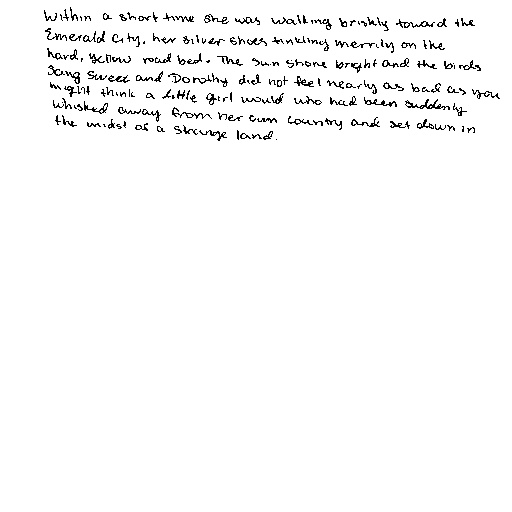 Within a short time she was walking briskly toward the
Emerald City, her silver shoes tinkling merrily on the
hard, yellow road bed. The sun shone bright and the birds
sang sweet and Dorothy did not feel nearly as bad as you
might think a little girl would who had been suddenly
whisked away from her own country and set down in
the midst of a strange land.